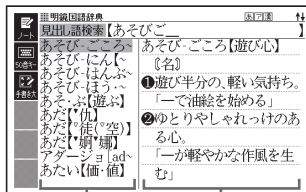 明鏡国語辞典
あア漢
見出し語検索【あそびご__ 】
ノート
50音キー
手書き大
あそび-ごころ~
あそび-にん【~
あそび-はんぶ~
あそび-ほう・~
あそ・ぶ【遊ぶ】
あだ【▾仇】
あだ【°徒(°空)】
あだ【▾婀▾娜】
アダージョ【ad~
あたい【価・値】
あそび-ごころ【遊び心】
〘名〙
❶遊び半分の、軽い気持ち。
「一で油絵を始める」
❷ゆとりやしゃれっけのあ
る心。
「一が軽やかな作風を生
む」